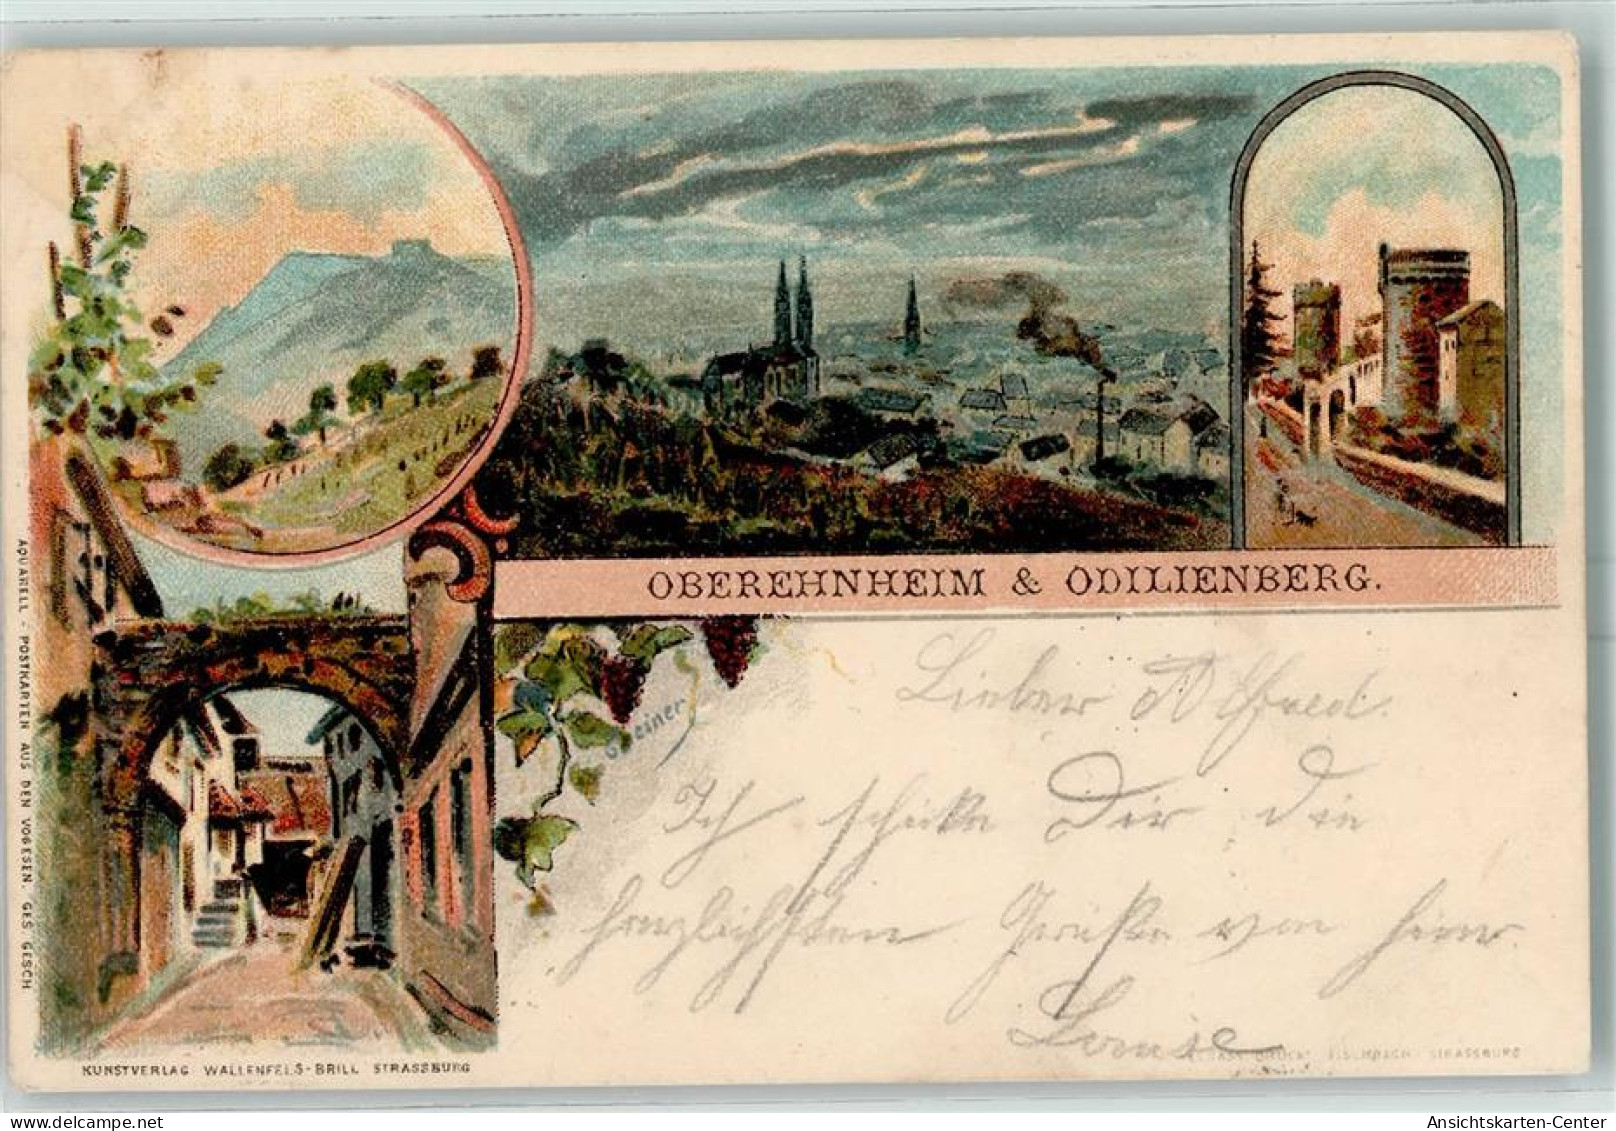 OBEREHNHEIM & ODILIENBERG.
Lieber Alfred.
Ich schicke Dir die
herzlichsten Grüße von hier
Louise
AQUARELL - POSTKARTEN AUS DEN VOGESEN. GES. GESCH.
KUNSTVERLAG WALLENFELS-BRILL STRASSBURG
STRASSBURG
Ansichtskarten-Center